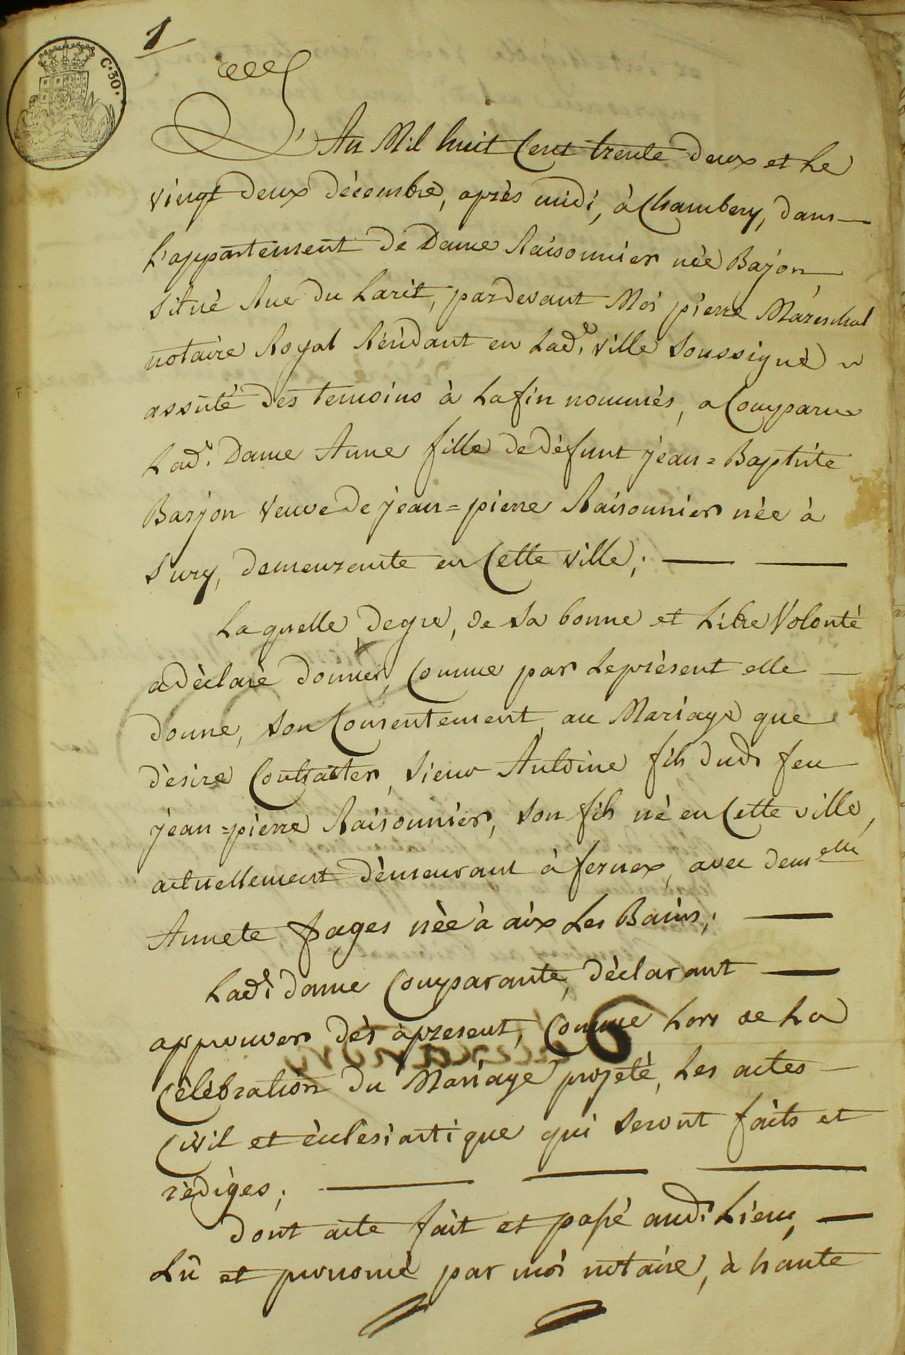 1
C. 30.
L'An Mil huit Cent trente deux et Le
vingt deux décembre, après midi, à Chambery, dans
L'appartement de Dame Raisonnier née Barjon
Situé Rue du Larit, pardevant Moi pierre Mareschal
notaire Royal Résidant en Lad.e ville Soussigné
assisté des temoins à Lafin nommés, a Comparu
Lad.e Dame Anne fille de défunt jean=Baptiste
Barjon Veuve de jean=pierre Raisonnier née à
Sury, demeurante en Cette ville;
Laquelle, degré, de Sa bonne et Libre Volonté
a déclaré donner, Comme par Leprésent elle
donne, Son Consentement au Mariage que
désire Contracter, Sieur Antoine fils dud.t feu
jean=pierre Raisonnier, Son fils né en Cette ville,
actuellement démeurant à fernex, avec demelle
Annete fages née à aix Les Bains;
Lad.e dame Comparante, déclarant
approuver dés àprésent, Comme Lors de La
Célébration du Mariage projeté, Les actes
Civil et éclésiastique qui Seront faits et
rédigés;
dont acte fait et passé aud.t Lieu,
Lû et prononcé par moi notaire, à haute